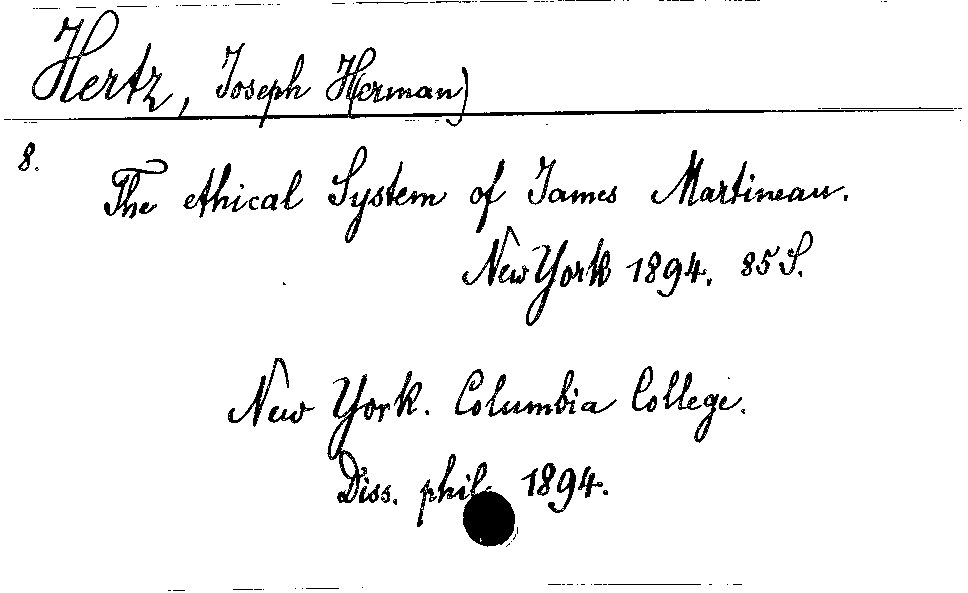 Hertz, Joseph Herman)
8.
The ethical System of James Martineau.
New York 1894. 85 S.
New York. Columbia College.
Diss. phil. 1894.